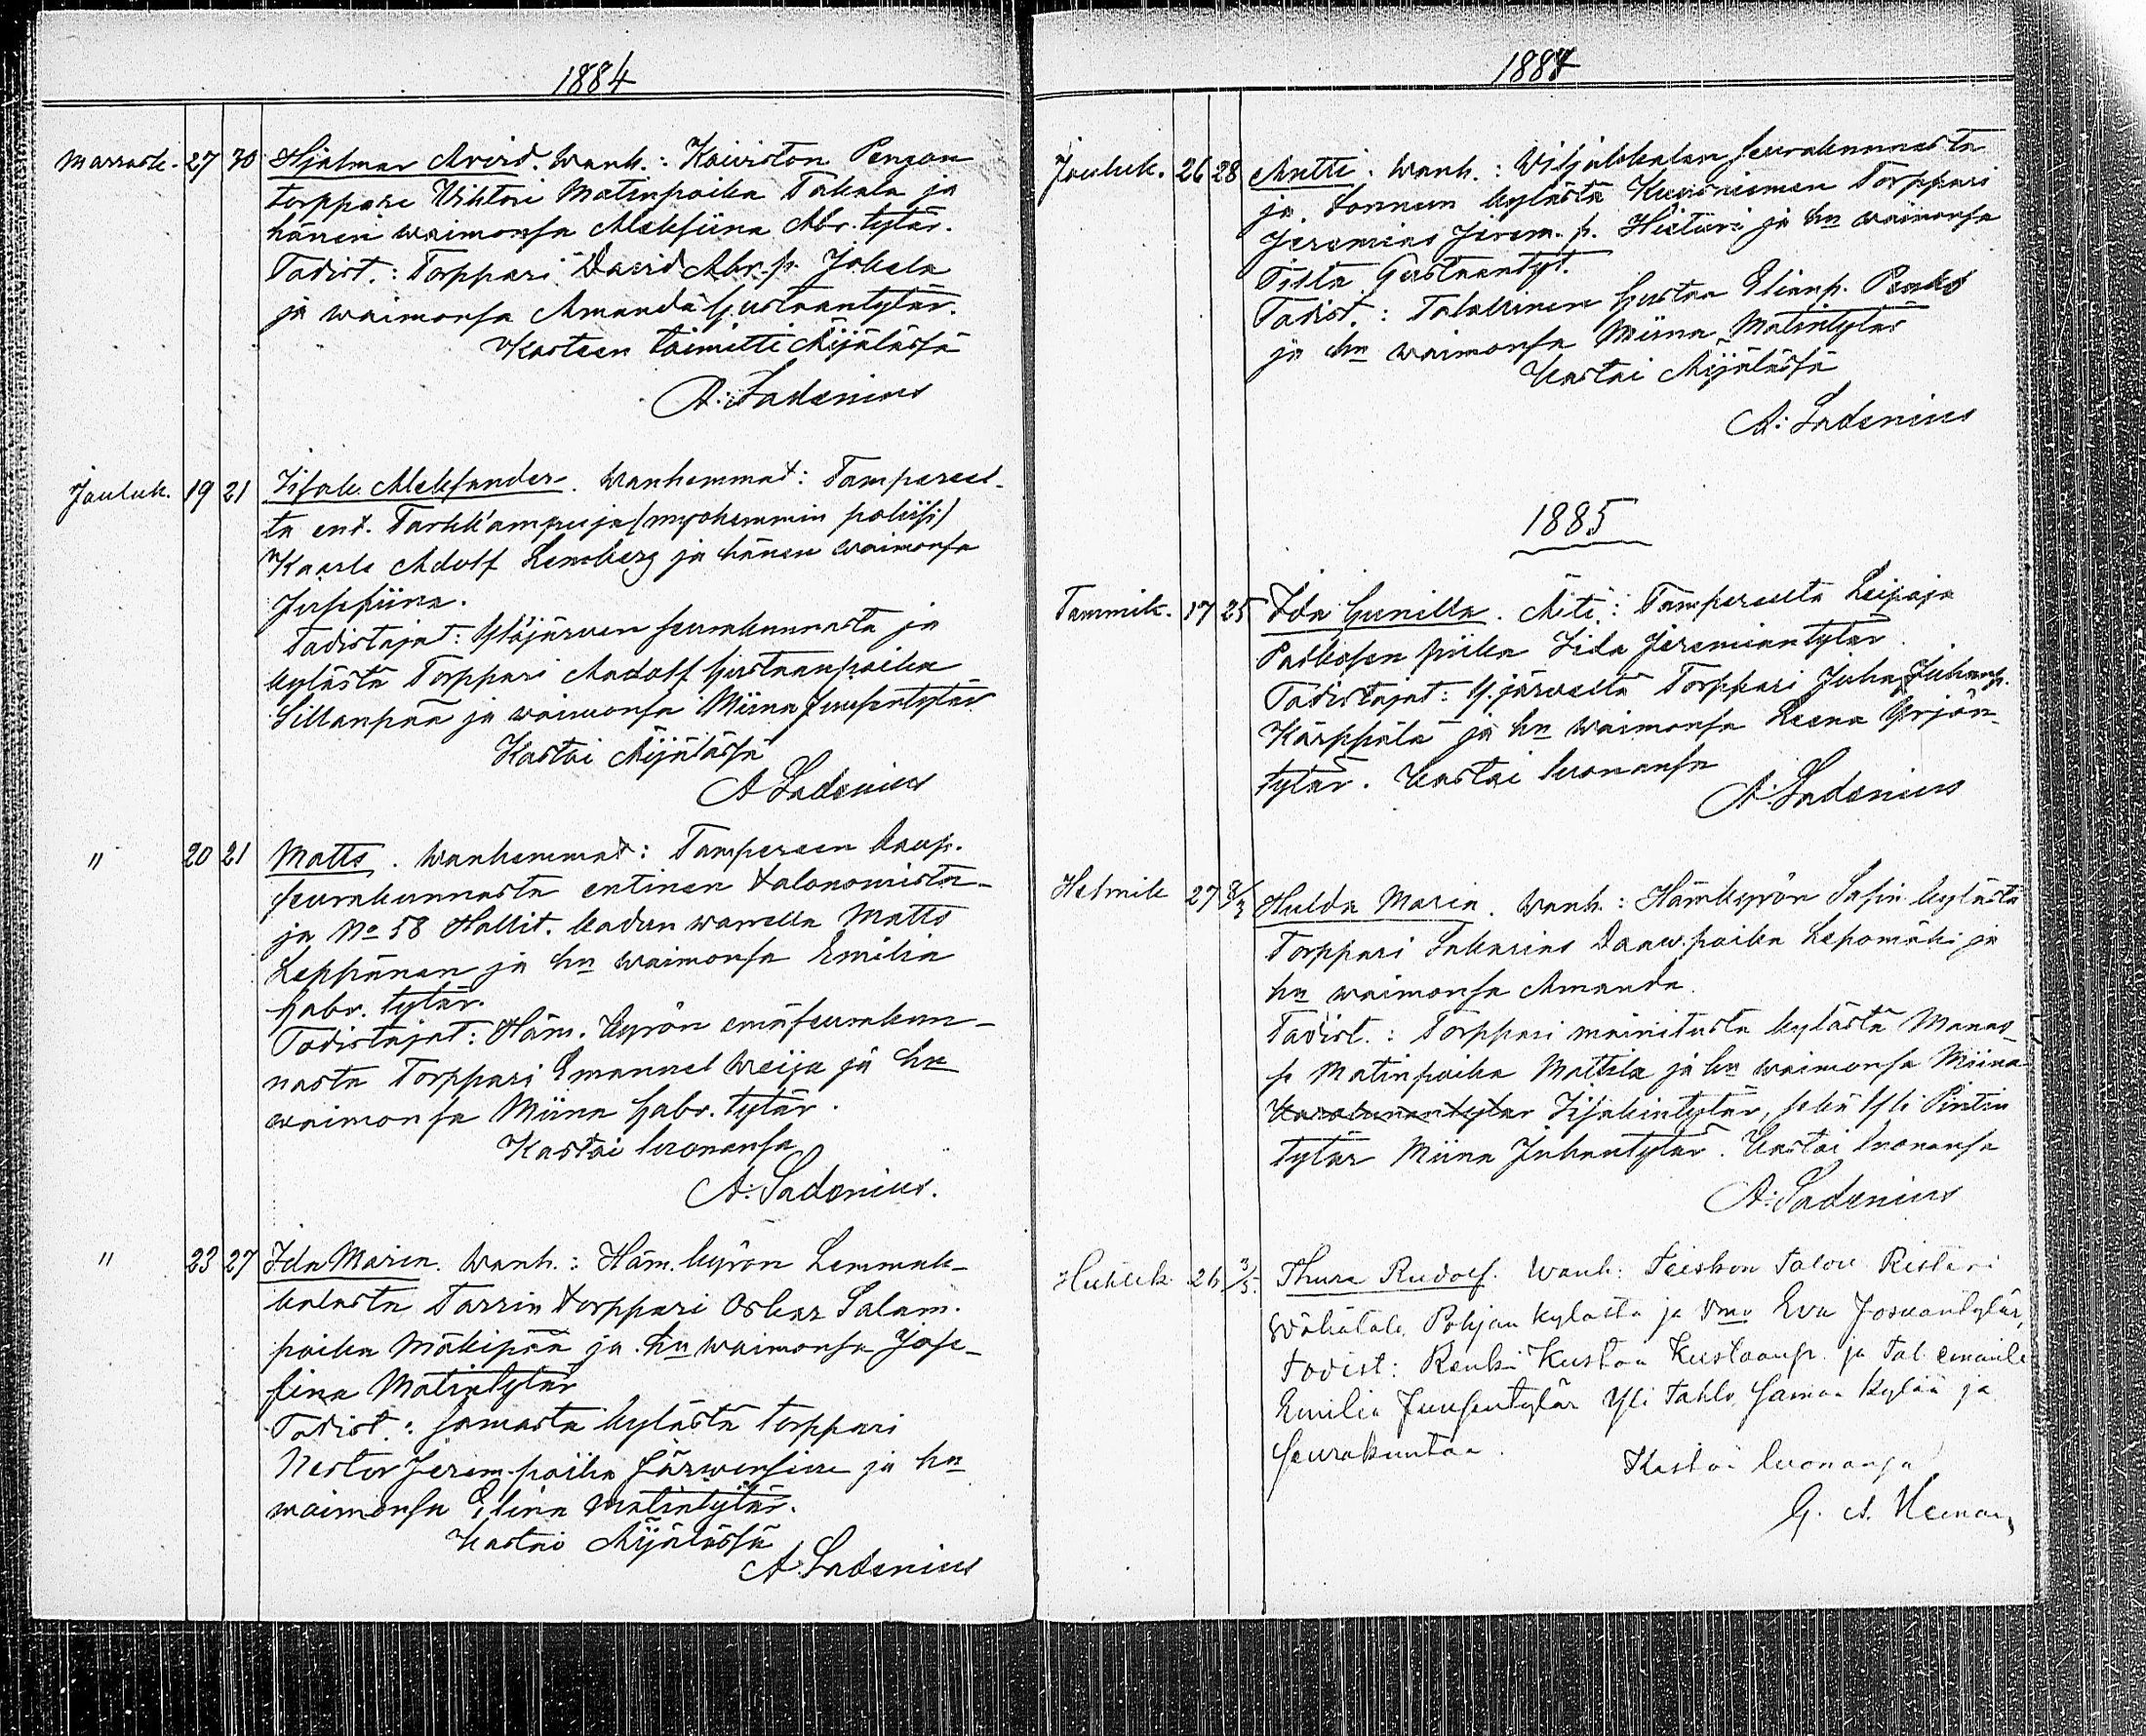 1884
Marrask. 27 30 Hjalmar Arvid. Wanh.: Koiviston Penzon
torppari Vihtori Matinpoika Takala ja
hänen waimonsa Aleksiina Abr. tytär.
Todist.: Torppari David Abr. p. Jokela
ja waimonsa Amanda Gustaantytär.
Kasteen toimitti Äijälässä
A: Ladenius
Jouluk. 19 21 Iisak Aleksander. Wanhemmat: Tampereel-
ta ent. Tarkk'ampuja (myöhemmin poliisi)
Kaarle Adolf Lemberg ja hänen waimonsa
Josefiina.
Todistajat: Ylöjärven seurakunnasta ja
kylästä Torppari Aadolf Gustaanpoika
Sillanpää ja waimonsa Miina Juusentytär
Kastoi Äijälässä
A Ladenius
" 20 21 Matts. Wanhemmat: Tampereen kaup.
seurakunnasta entinen talonomista-
ja No 58 Hallit. kadun warrella Matts
Leppänen ja hn waimonsa Emilia
Gabr. tytär.
Todistajat: Häm. kyrön emäseurakun-
nasta Torppari Emanuel Weija ja hn
waimonsa Miina Gabr. tytär.
Kastoi luonansa
A: Ladenius.
" 23 27 Ida Maria. Wanh.: Häm. kyrön Lemmak-
kalasta Tarrin torppari Oskar Salam.
poika Mäkipää ja hn waimonsa Jose-
fina Matintytär
Todist.: samasta kylästä torppari
Nestor Jerem. poika Järwensiwu ja hn
waimonsa Elina Matintytär.
Kastoi Äijälässä
A. Ladenius
1884
Jouluk. 26 28 Antti. Wanh.: Wiljakkalan seurakunnasta
ja kylästä Kuusniemen Torppari
Jeremias Jerem. p. Hieturi ja hn waimonsa
Tilta Gustaantyt.
Todist.: Talollinen Gustaa Elianp. Penkо
ja hn waimonsa Miina Matintytär
Kastoi Äijälässä
A: Ladenius
1885
Tammik. 17 25 Ida Gunilla. Äiti: Tampereelta Leipojo
Palkosen piika Iida Jeremiantytär.
Todistajat: Y.järveltä Torppari Juha Juhanp.
Kärppälä ja hn waimonsa Leena Yrjön-
tytär. Kastoi luonansa
A: Ladenius
Helmik 27 8/3 Hulda Maria. Wanh.: Hämkyrön Sasin kylästä
Torppari Sakarias Daaw. poika Lepomäki ja
hn waimonsa Amanda.
Todist.: Torppari mainitusta kylästä Manas-
se Matinpoika Mattila ja hn waimonsa Miina
Iisakintytär, sekä Yli Pintin
tytär Miina Juhantytär. Kastoi luonansa
A: Ladenius
Huhtik. 26 3/5. Thure Rudolf. Wanh: Teiskon Talou Risteri
Wähätalo, Pohjan kylästä ja Vmo Eva Josuantytär,
todist: Renki Kustaa Kustaanp. ja Tal. emäntä
Emilia Juusentytär Yli Tahlo, samaa kylää ja
seurakuntaa.
Kastoi luonansa
G. A. Heman